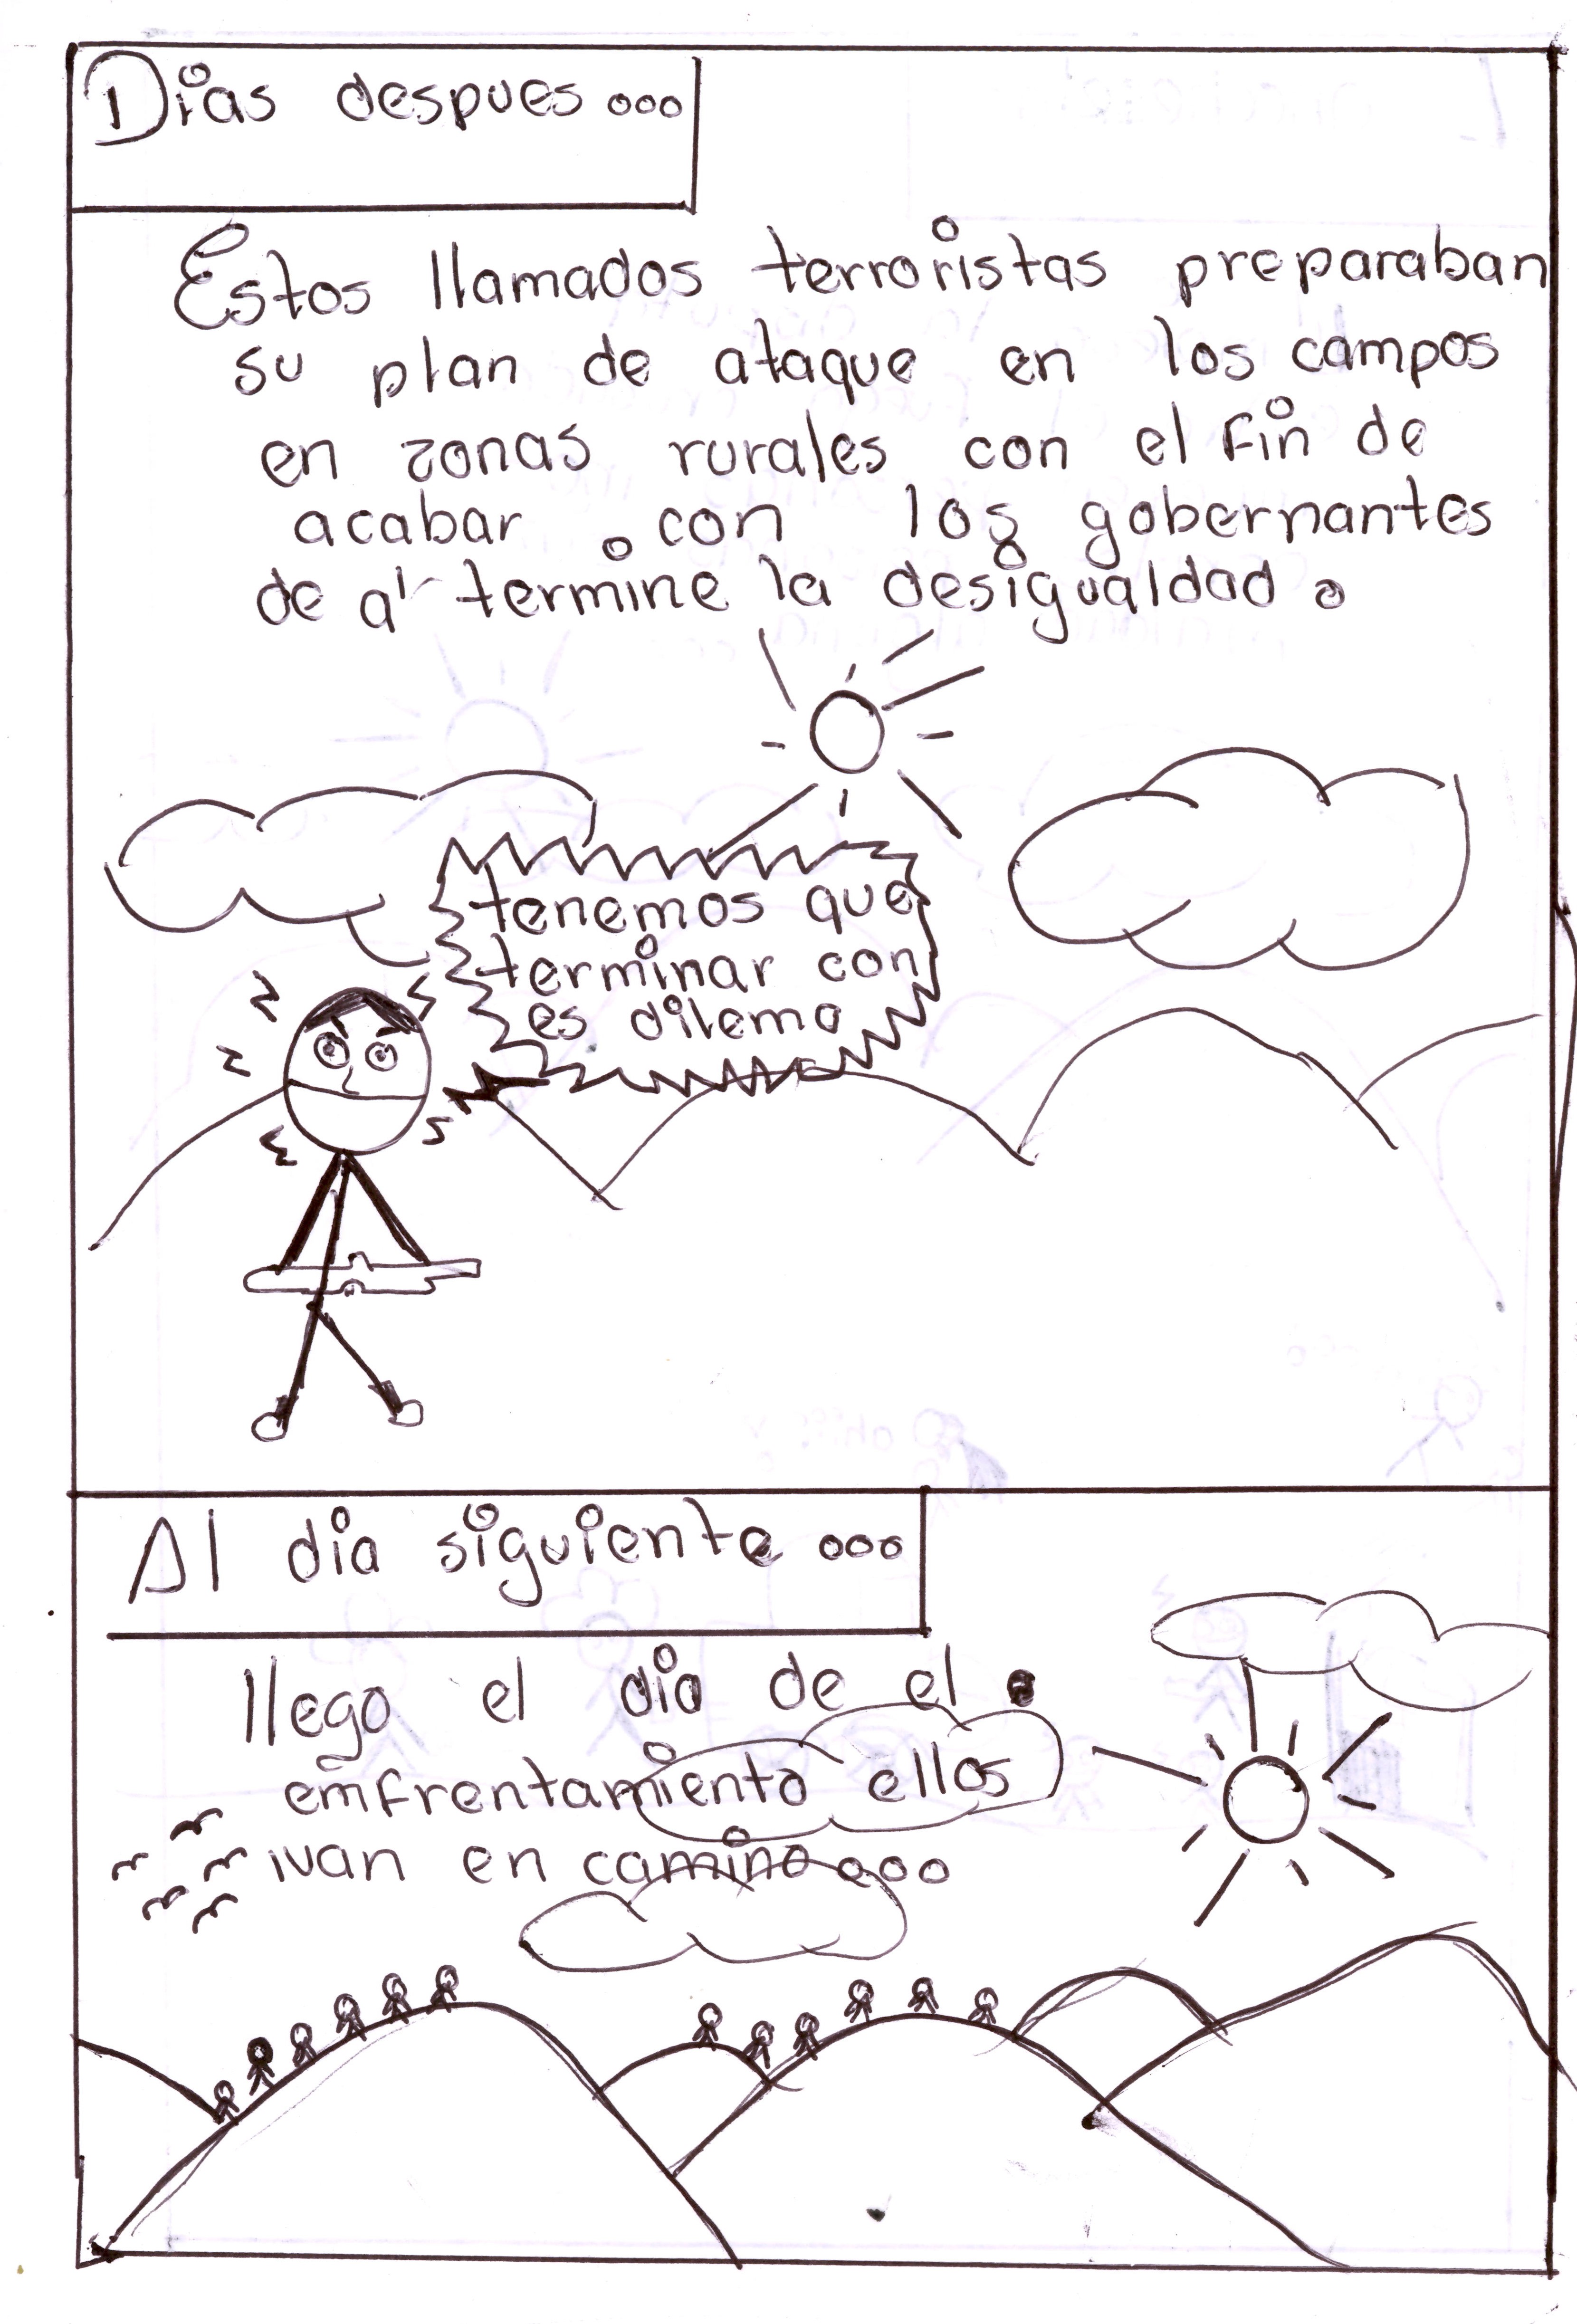 Dias despues...
Estos llamados terroristas preparaban
su plan de ataque en los campos
en zonas rurales con el fin de
acabar con los gobernantes
de ai termine la desigualdad.
tenemos que
terminar con
es dilema
Al dia siguiente...
llego el dia de el
emfrentamiento ellos
ivan en camino...